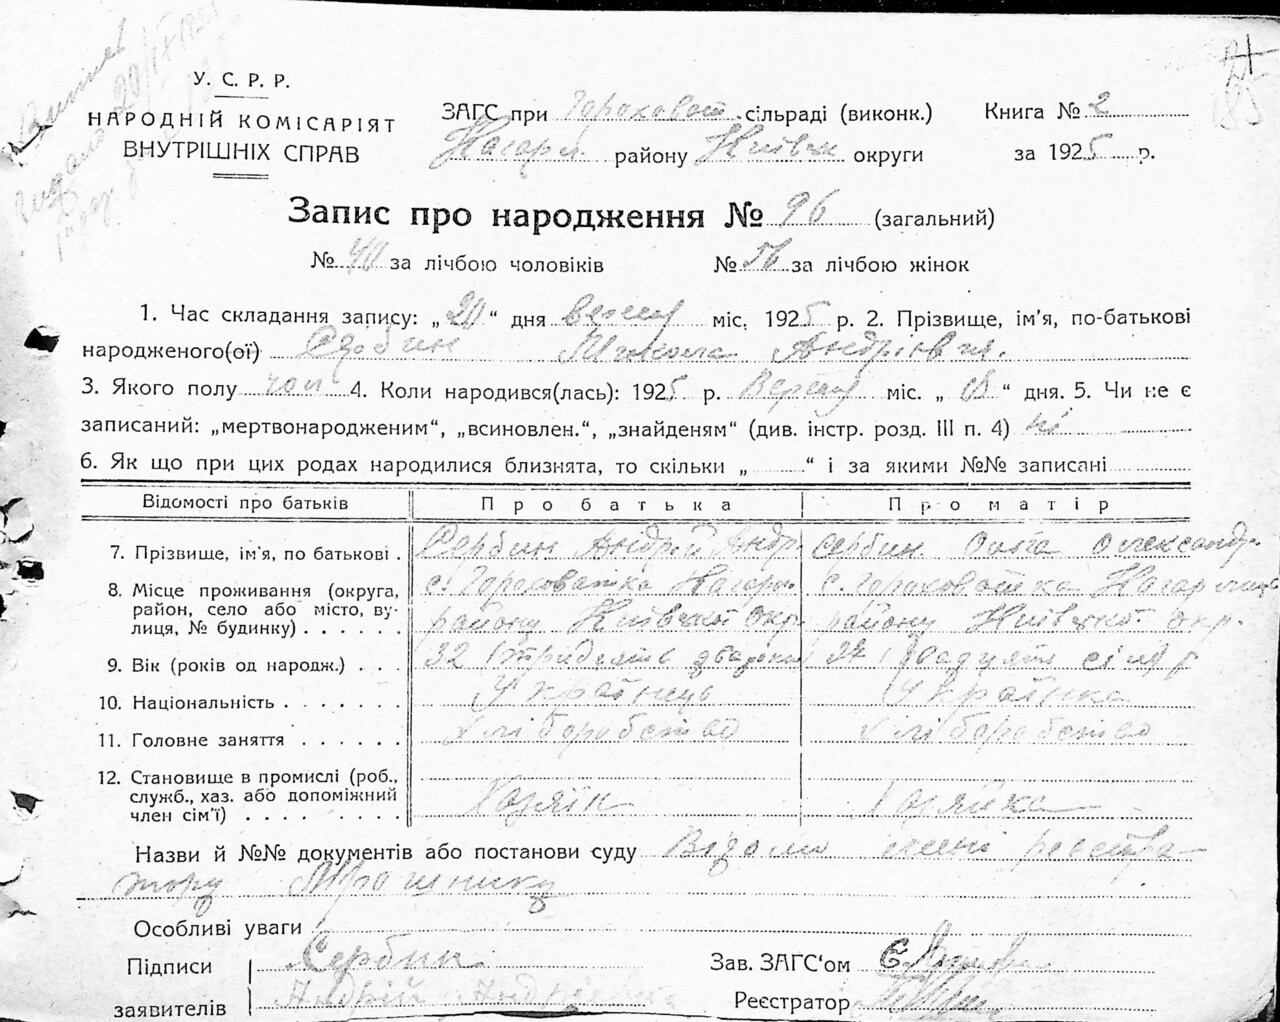 У. С. Р. Р.
НАРОДНІЙ КОМІСАРІЯТ
ВНУТРІШНІХ СПРАВ
ЗАГС при Гороховат. сільраді (виконк.) Книга № 2
Кагарл району Київск округи за 1925 р.
Запис про народження № 96 (загальний)
№ 40 за лічбою чоловіків № 56 за лічбою жінок
1. Час складання запису: „20“ дня міс. 1925 р. 2. Прізвище, ім'я, по-батькові
народженого(ої) Микола Андрієвич.
3. Якого полу чол 4. Коли народився(лась): 1925 р. міс. „18“ дня. 5. Чи не є
записаний: „мертвонародженим“, „всиновлен.“, „знайденям“ (див. інстр. розд. III п. 4) ні
6. Як що при цих родах народилися близнята, то скільки „ “ і за якими №№ записані
Відомості про батьків Про батька Про матір
7. Прізвище, ім'я, по батькові . Сербин Андрій Андр. Сербин Ольга Олександр
8. Місце проживання (округа, с. Гороховатка Кагарл с. Гороховатка Кагарл
район, село або місто, ву- району Київської окр. району Київської окр.
лиця, № будинку) . . . . . .
9. Вік (років од народж.) . . . 32 (тридсять два 27 (двадцять сім)
10. Національність . . . . . . . Українець Українка
11. Головне заняття . . . . . . Хліборобство Хліборобство
12. Становище в промислі (роб.,
служб., хаз. або допоміжний Хозяїн Хозяйка
член сім'ї) . . . . . . . . .
Назви й №№ документів або постанови суду Відомі мені реєстра-
тору
Особливі уваги
Підписи Сербин Зав. ЗАГС‘ом
заявителів Андрій Реєстратор